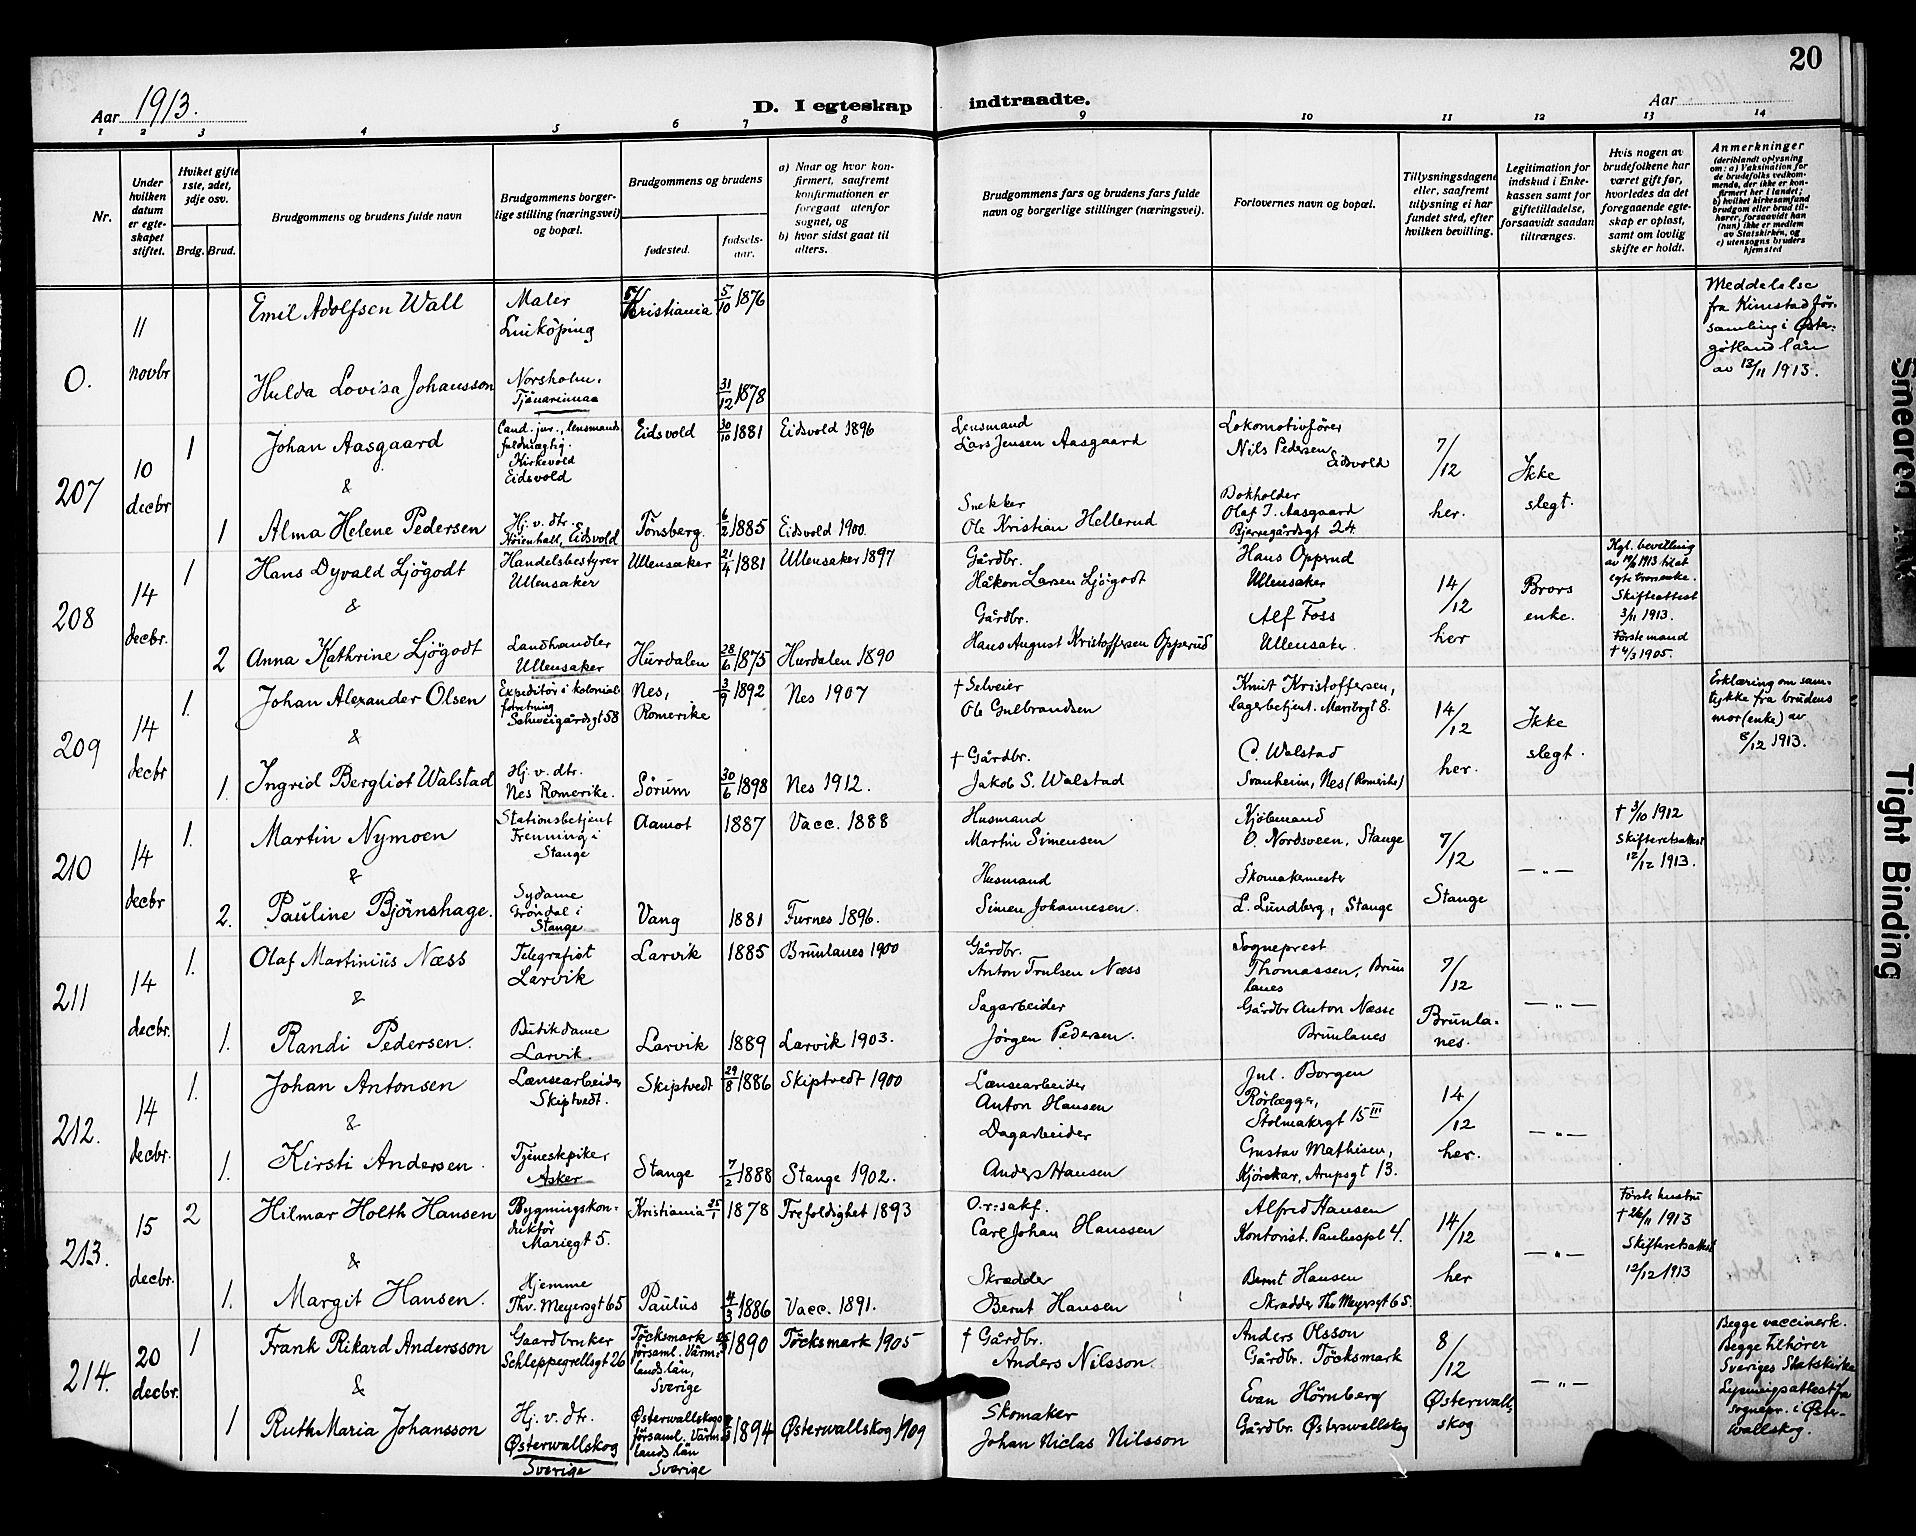 20
Aar 1913.
D. I egteskap indtraadte.
Aar
1 2 3 4 5 6 7 8 9 10 11 12 13 14
Nr.
Under hvilken datum er egteskapet stiftet.
Hvilket gifte 1ste, 2det, 3dje osv.
Brdg. Brud.
Brudgommens og brudens fulde navn
Brudgommens borgerlige stilling (næringsvei) og bopæl.
Brudgommens og brudens
fødested.
fødsels-aar.
a) Naar og hvor konfirmert, saafremt konfirmationen er foregaat utenfor sognet, og
b) hvor sidst gaat til alters.
Brudgommens fars og brudens fars fulde navn og borgerlige stillinger (næringsvei).
Forlovernes navn og bopæl.
Tillysningsdagene eller, saafremt tillysning ei har fundet sted, efter hvilken bevilling.
Legitimation for indskud i Enkekassen samt for giftetilladelse, forsaavidt saadan tiltrænges.
Hvis nogen av brudefolkene har været gift før, hvorledes da det foregaaende egteskap er opløst, samt om lovlig skifte er holdt.
Anmerkninger
(deriblandt oplysning om: a) Vaksination for de brudefolks vedkommende, der ikke er konfirmert her i landet; b) hvilket kirkesamfund brudgom eller brud tilhører, forsaavidt han (hun) ikke er medlem av Statskirken, og c) utensogns bruders hjemsted
0.
11 novbr
Emil Adolfsen Wall
Maler
Linköping
Kristiania 5/10 1876
Hulda Lovisa Johansson
Norsholm.
31/12 1878
Meddelelse
fra Kimstad för-
samling i Øste-
götland län
av 12/11 1913.
207
10 decbr
1
Johan Aasgaard
&
Cand. jur., lensmands
fuldmægtig.
Kirkevold
Eidsvold
Eidsvold 30/10 1881 Eidsvold 1896
Lensmand
Lars Jensen Aasgaard
Lokomotivfører
Nils Pedersen
Eidsvold
7/12 her.
Ikke slegt.
1 Alma Helene Pedersen
Hj. v. dtr.
Høienhall, Eidsvold
Tønsberg. 6/2 1885 Eidsvold 1900.
Snekker
Ole Kristian Hellerud
Bokholder
Olaf J. Aasgaard
Bjerregårdsgt 24.
208
14 decbr.
1
Hans Dyvald Ljögodt
&
Handelsbestyrer
Ullensaker
Ullensaker 21/4 1881 Ullensaker 1897
Gårdbr.
Håkon Larsen Ljögodt
Hans Opperud
Ullensaker
14/12 her
Brors enke.
Kgl. bevilling
av 19/9 1913 til at
egte brors enke.
Skifteattest
3/11 1913.
Förste mand
† 4/3 1905.
2 Anna Kathrine Ljögodt
Landhandler
Ullensaker
Hurdalen 28/6 1875 Hurdalen 1890
Gårdbr.
Hans August Kristoffersen Opperud
Alf Foss
Ullensaker.
209
14 decbr
1.
Johan Alexander Olsen
&
Expeditør i kolonial-
forretning
Schweigårdsgt 58
Nes, Romerike 3/9 1892 Nes 1907
† Selveier
Ole Gulbrandsen
Knut Kristoffersen,
Lagerbetjent. Maribogt 8.
14/12 her.
Ikke slegt.
Erklæring om sam-
tykke fra brudens
mor (enke) av
8/12 1913.
1. Ingrid Bergliot Walstad
Hj. v. dtr.
Nes Romerike.
Sörum 30/6 1898 Nes 1912.
† Gårdbr.
Jakob S. Walstad
C. Walstad
Svanheim, Nes (Romerike)
210
14 decbr
1.
Martin Nymoen
&
Stationsbetjent
Frenning i
Stange
Aamot 1887 Vacc. 1888
Husmand
Martin Simensen
Kjöbmand
O. Nordsveen, Stange
7/12 Stange
— „ —
† 3/10 1912
Skifteretsattest
12/12 1913.
2. Pauline Björnshage.
Sydame
Gröndal i
Stange
Vang 1881 Furnes 1896.
Husmand
Simen Johannesen.
Skomakermester
L. Lundberg, Stange
211
14 decbr.
1.
Olaf Martinius Næss
&
Telegrafist
Larvik
Larvik 1885 Brunlanes 1900
Gårdbr.
Anton Trulsen Næss
Sogneprest
Thomassen, Brun
lanes
7/12 Brunla-nes.
— „ —
1. Randi Pedersen.
Butikdame
Larvik.
Larvik 1889 Larvik 1903.
Sagarbeider
Jörgen Pedersen.
Gårdbr Anton Næsse
Brunlanes
212.
14 decbr.
1.
Johan Antonsen
&
Lænsearbeider
Skiptvedt.
Skiptvedt 29/8 1886 Skiptvedt 1900
Lænsearbeider
Anton Hansen
Jul. Borgen
Rörlægger,
Stolmakergt 15 III
14/12 her.
— „ —
1. Kirsti Andersen.
Tjenestepike
Asker
Stange 7/2 1888 Stange 1902.
Dagarbeider
Anders Hansen
Gustav Mathisen,
Kjörekar, Arupsgt 13.
213.
15 decbr.
2
Hilmar Holth Hansen
&
Bygningskon-
duktör
Mariegt 5.
Kristiania 25/1 1878 Trefoldighet 1893
O.r.sakf.
Carl Johan Hanssen
Alfred Hansen
Kontorist. Pauluspl 4.
14/12 her
— „ —
Förste hustru
† 26/11 1913
Skifteretsattest
12/12 1913
1. Margit Hansen.
Hjemme
Thv. Meyersgt 65
Paulus 4/3 1886 Vacc. 1891.
Skrædder
Bernt Hansen
Bernt Hansen
Skrædder Thv Meyersgt 65.
214.
20 decbr.
1
Frank Rikard Andersson
&
Gaardbruker
Schleppegrellsgt 26
Töcksmark
församl. Värm-
lands län,
Sverige
1890 Töcksmark 1905
† Gårdbr.
Anders Nilsson.
Anders Olsson
Gårdbr. Töcksmark
8/12 Østerwall-skog
— „ —
Begge vaccinerk.
Begge tilhører
Sveriges Statskirke
Lysningsattest fra
sognepr. i Øster-
wallskog.
1 Ruth Maria Johansson
Hj. v. dtr.
Østerwallskog
Sverige
Østerwallskogs
församl. Värm-
lands län
Sverige
1894 Østerwallskog 1909
Skomaker
Johan Niclas Nilsson
Evan Hörnberg
Gårdbr. Østerwallskog
Smeared
Tight Binding